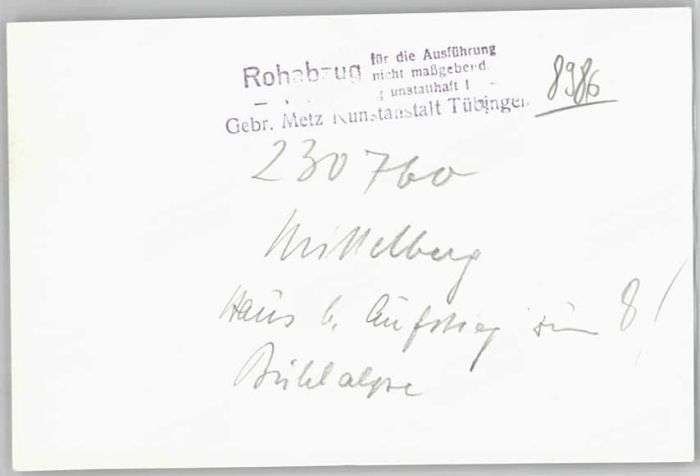 Rohabzug für die Ausführung
nicht maßgebend.
unstatthaft !
Gebr. Metz Kunstanstalt Tübingen
8986
230760
Mittelberg
Haus b. Aufstieg zur 8 !
Bühlalpe